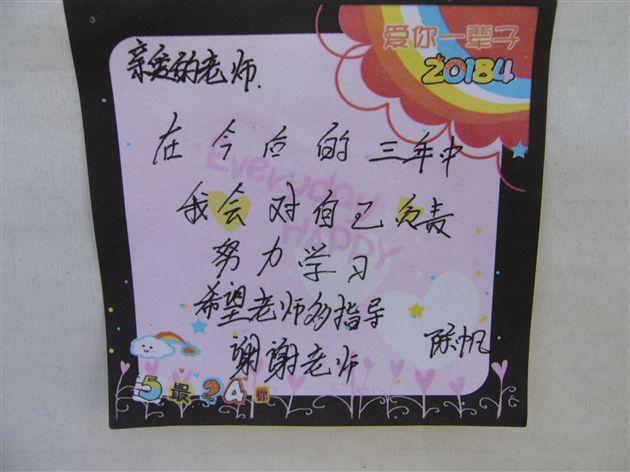 爱你一辈子
20184
亲爱的老师
在今后的三年中
Everyday
HAPPY
我会对自己负责
努力学习
希望老师多指导
谢谢老师
陈帆
5最24你